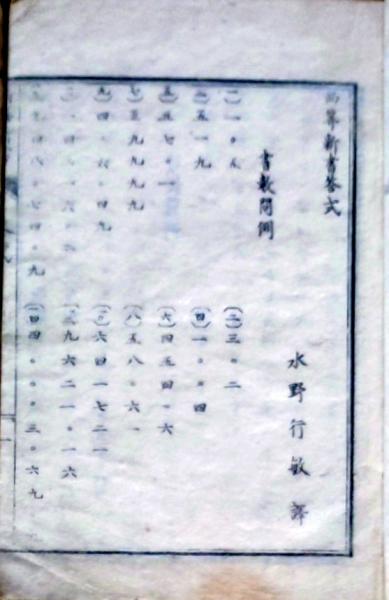 西算新書答式
水野行敏譯
書數問例
(一)一〇五
(二)三〇二
(三)五一九
(四)一〇〇四
(五)五七〇一
(六)四五四〇六
(七)三九九九九
(八)五八〇六一
(九)四〇六〇四九
(十)六四一七二一
九六二一〇一六
四八〇七四〇九
四四〇〇〇三〇六九